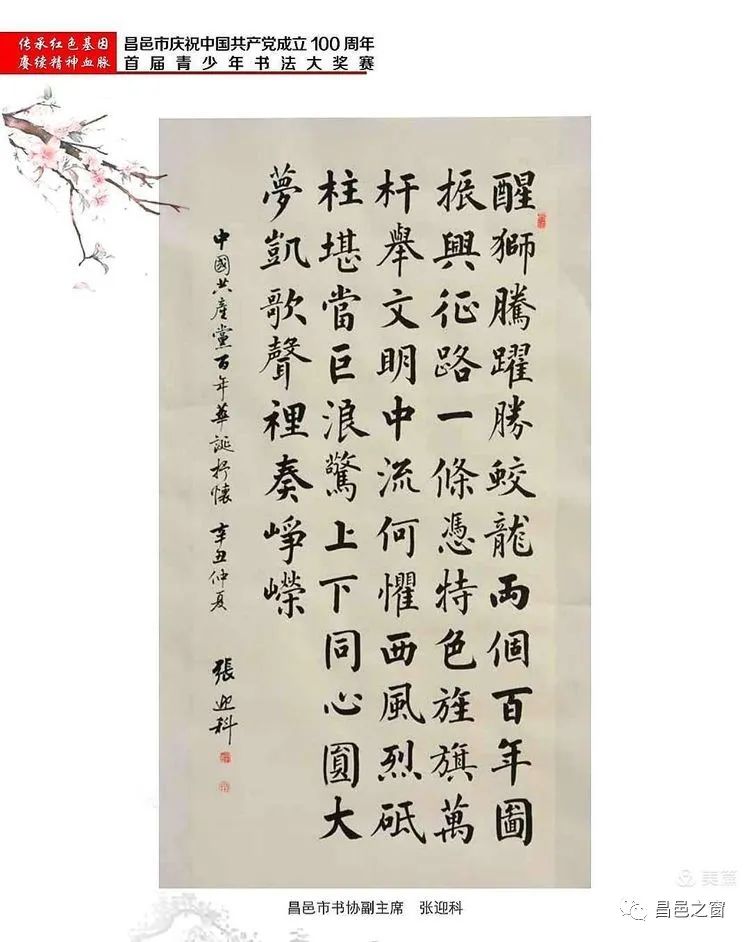 传承红色基因
赓续精神血脉
昌邑市庆祝中国共产党成立100周年
首届青少年书法大奖赛
醒獅騰躍勝蛟龍兩個百年圖
振興征路一條憑特色旌旗萬
杆舉文明中流何懼西風烈砥
柱堪當巨浪驚上下同心圓大
夢凱歌聲裡奏崢嶸
中國共產黨百年華誕抒懷 辛丑仲夏
張迎科
昌邑市书协副主席 张迎科
美篇
昌邑之窗